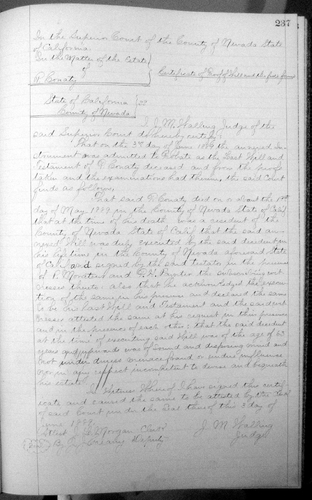 237
In the Superior Court of the County of Nevada State
of California.
In the Matter of the Estate
of
Certificate of Proof of Will and the
State of California
County of Nevada ss
I J M Walling Judge of the
said Superior Court do hereby certify:
That on the 3d day of June the annexed In-
strument was admitted to Probate as the Last Will and
Testament of deceased and from the proofs
taken and the examinations had therein, the said Court
finds as follows:
That said died on or about the
day of May in the County of Nevada State of Calif
that at the time of his death he was a resident of the
County of Nevada State of Calif that the said an-
nexed Will was duly executed by the said decedent in
his lifetime in the County of Nevada State
of Calif and signed by the said testator in the presence
of and the subscribing wit-
nesses thereto: also that he acknowledged the execu-
tion of the same in their presence and declared the same
to be his Last Will and Testament and the said wit-
nesses attested the same at his request in their presence
and in the presence of each other: that the said decedent
at the time of executing said Will was of the age of
years and upwards was of sound and disposing mind and
not under duress menace fraud or undue influence
nor in any respect incompetent to devise and bequeath
his estate.
In Witness Whereof I have signed this certifi-
cate and caused the same to be attested by the Clerk
of said Court under the Seal thereof this 3 day of
June
Attest Morgan Clerk
By Deputy
J M Walling
Judge